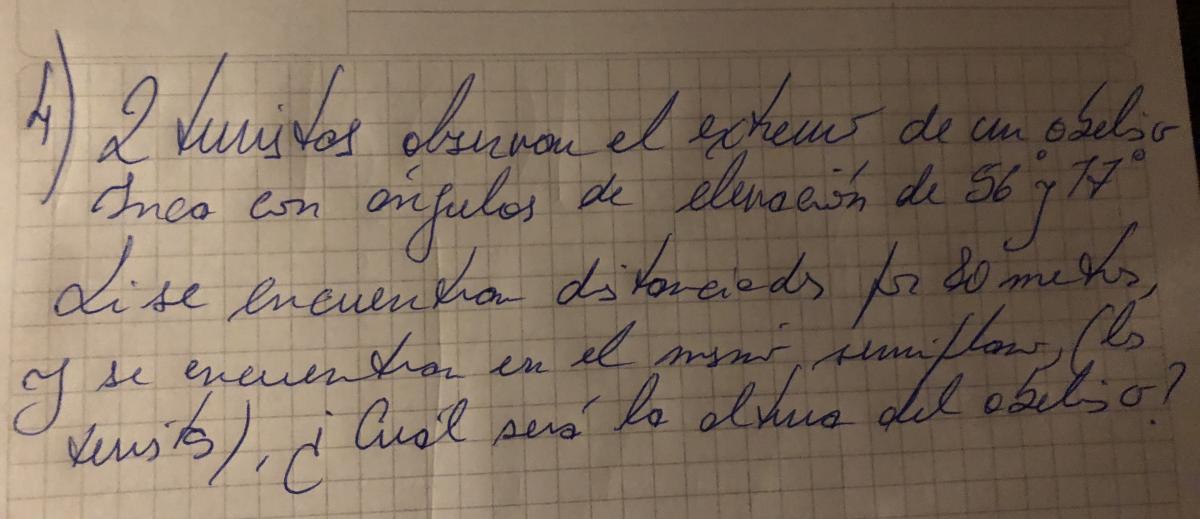 4) 2 turistas observan el extremo de un obelisco
Inca con ángulos de elevación de 56° y 77°
si se encuentran distanciados por 80 metros,
y se encuentran en el mismo semiplano, (los
turistas), ¿Cuál será la altura del obelisco?